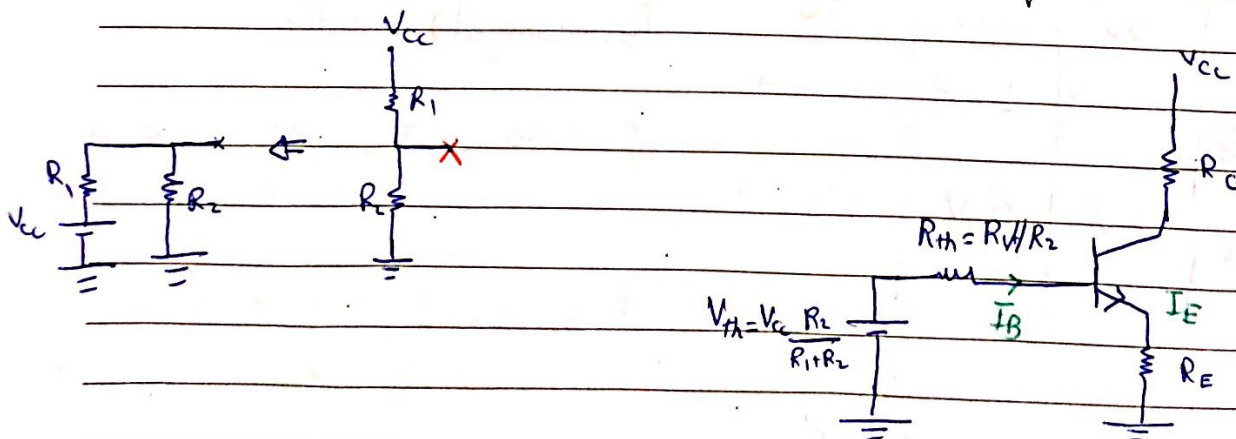 Vcc
Vcc
R1
R1
R2
R2
Vcc
RC
Rth = R1//R2
Vth = Vcc R2
R1+R2
IB
IE
RE